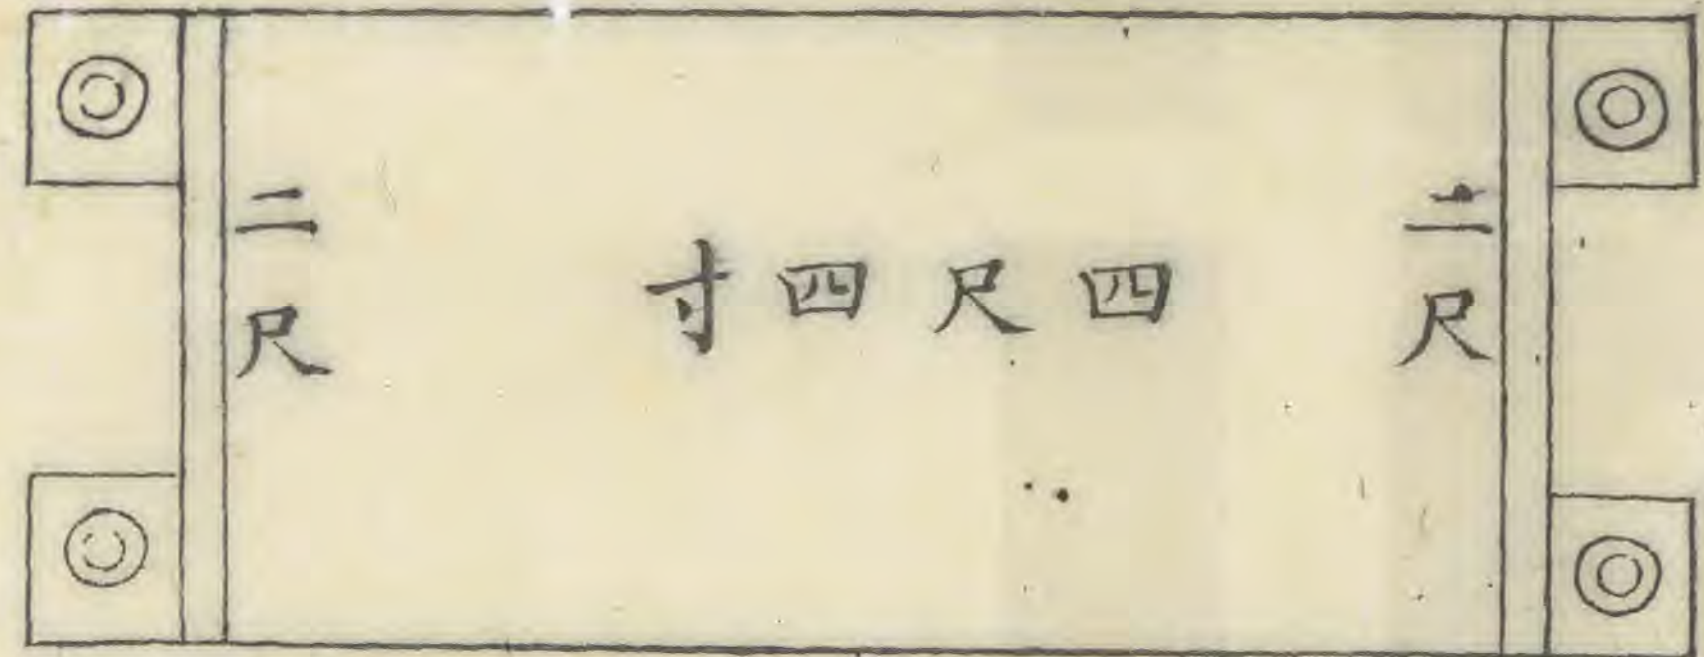 二尺
四尺四寸
二尺